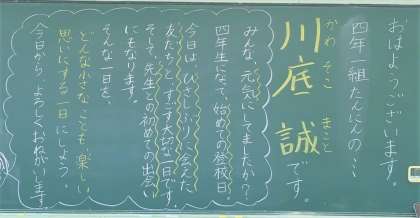 おはようございます。
四年一組たんにんの…
川底 誠です。
かわ そこ まこと
みんな、元気にしてましたか？
四年生になって、始めての登校日。
今日は、ひさしぶりに会えた
友だちと、すごす大切な一日です。
そして、先生との初めての出会い
にもなります。
そんな一日を、
どんな小さなことでも、楽しい
思いにする一日にしよう。
今日から、よろしくおねがいします。